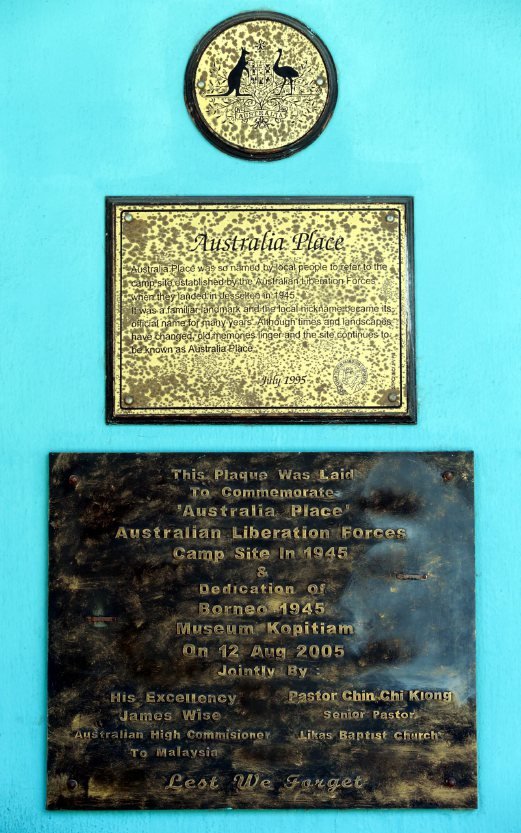 AUSTRALIA
Australia Place
Australia Place was so named by local people to refer to the
camp site established by the Australian Liberation Forces
when they landed in Jesselton in 1945.
It was a familiar landmark and the local nickname became its
official name for many years. Although times and landscapes
have changed, old memories linger and the site continues to
be known as Australia Place.
July 1995
This Plaque Was Laid
To Commemorate
'Australia Place'
Australian Liberation Forces
Camp Site In 1945
&
Dedication of
Borneo 1945
Museum Kopitiam
On 12 Aug 2005
Jointly By :
His Excellency
James Wise
Australian High Commisioner
To Malaysia
Pastor Chin Chi Kiong
Senior Pastor
Likas Baptist Church
Lest We Forget